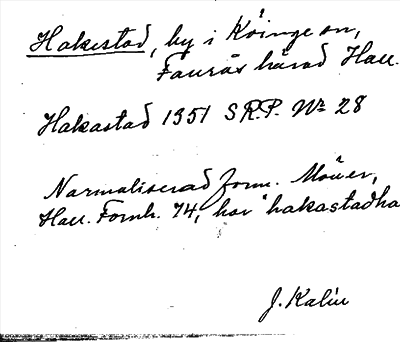 Hakestad, by i Köinge sn,
Faurås härad Hall.
Hakastad 1351 S.R.P. Nr 28
Normaliserad form. Möller,
Hall. Fornh. 74, har "hakastadha
J. Kalén